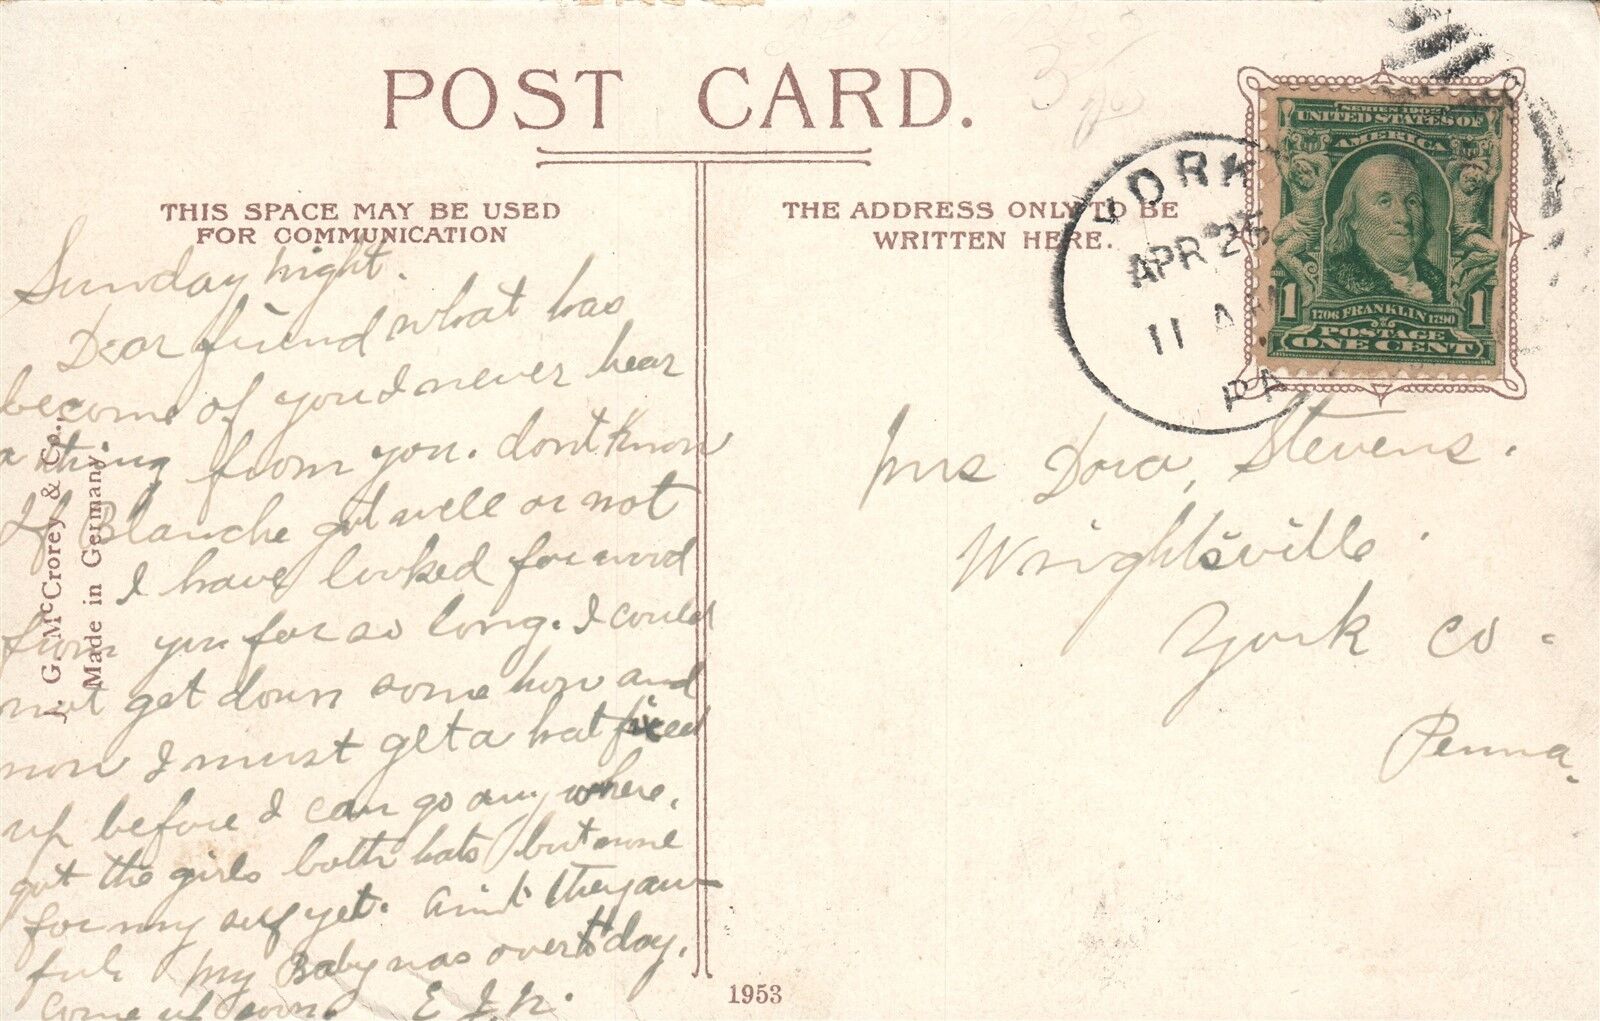 POST CARD.
THIS SPACE MAY BE USED
FOR COMMUNICATION
THE ADDRESS ONLY TO BE
WRITTEN HERE.
YORK
APR 25
11 AM
PA
SERIES 1902
UNITED STATES OF
AMERICA
1 1706 FRANKLIN 1790 1
POSTAGE
ONE CENT
Sunday night.
Dear friend what has
become of you I never hear
a thing from you. dont know
If Blanche got well or not
I have looked forward
from you for so long. I could
not get down some how and
now I must get a hat fixed
up before I can go any where.
got the girls both hats but none
for my self yet. aint they aw
ful. My Baby was over to day.
Come up soon. E J
Mrs Dora Stevens.
Wrightsville.
York Co.
Penna.
J. G. McCrorey & Co.,
Made in Germany.
1953